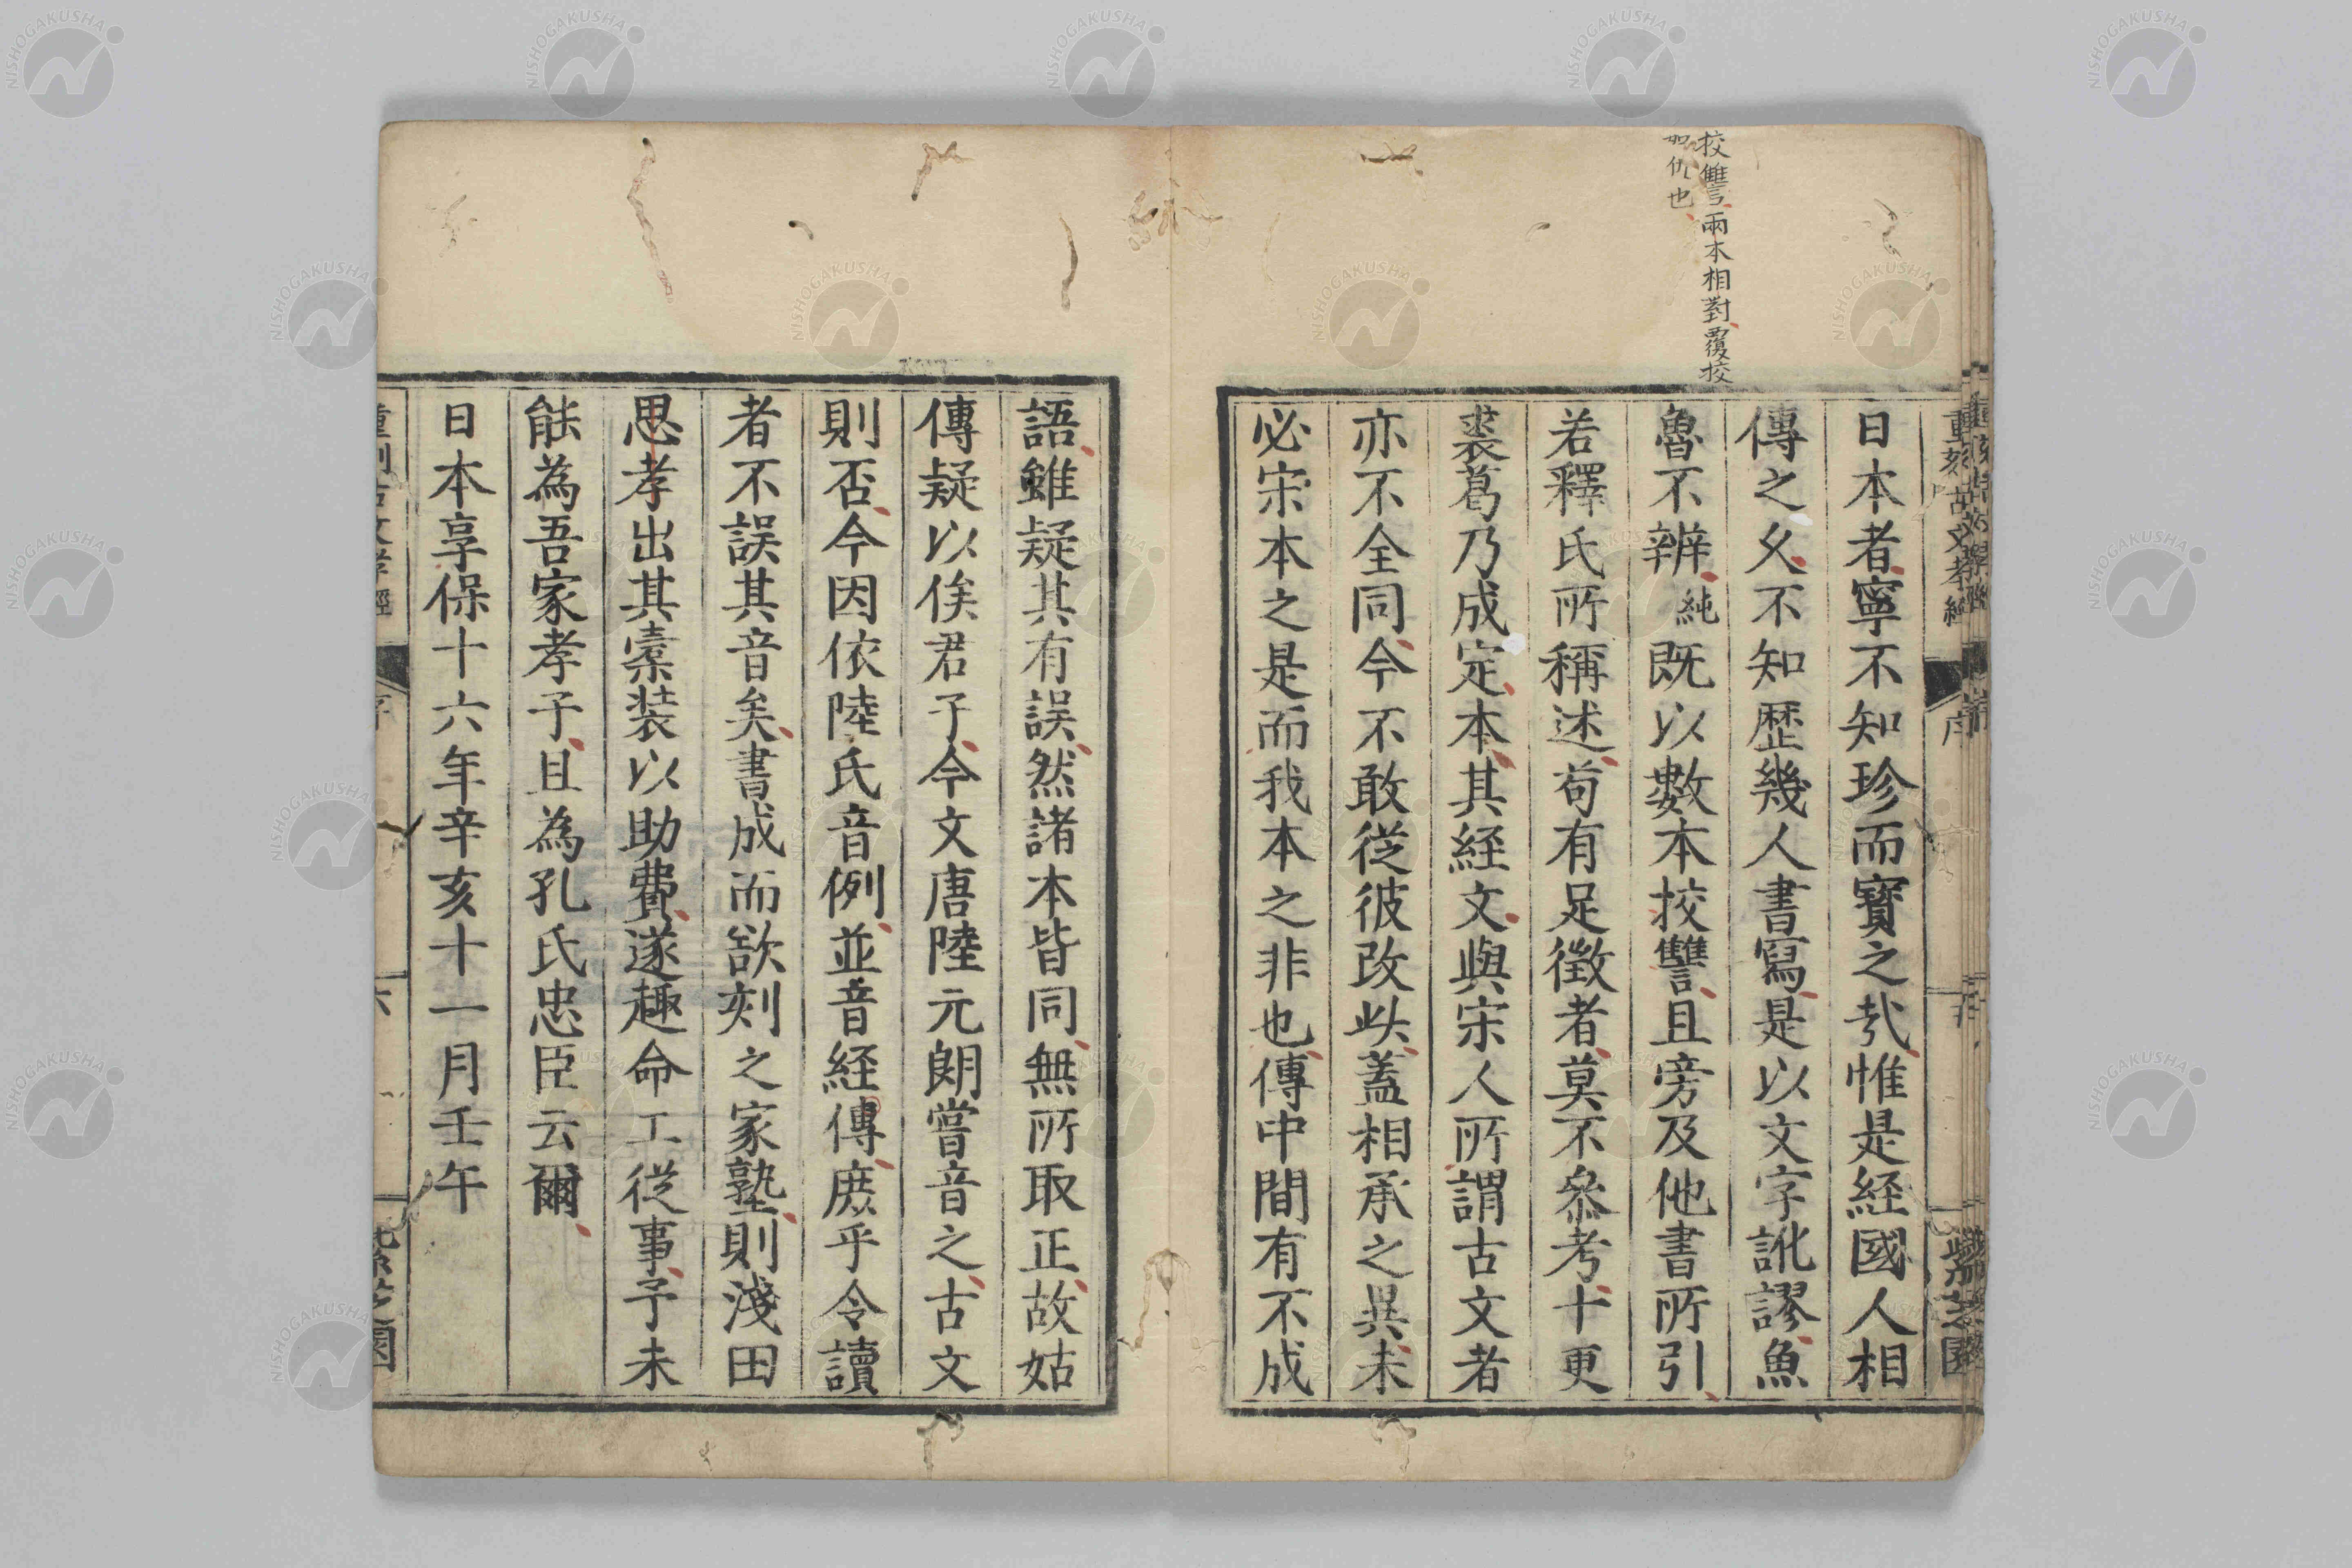 校讐兩本相對覆挍
如仇也
重刻古文孝經
序
紫芝園
日本者寧不知珍而寶之㢤惟是経國人相
傳之久不知歴幾人書寫是以文字訛謬魚
魯不辨純既以數本挍讐且旁及他書所引
若釋氏所稱述苟有足徵者莫不叅考十更
裘葛乃成定本其経文與宋人所謂古文者
亦不全同今不敢從彼改此蓋相承之異未
必宋本之是而我本之非也傳中間有不成
語雖疑其有誤然諸本皆同無所取正故姑
傳疑以俟君子今文唐陸元朗嘗音之古文
則否今因依陸氏音例並音経傳庶乎令讀
者不誤其音矣書成而欲刻之家塾則淺田
思孝出其槖装以助費遂趣命工從事予未
能為吾家孝子且為孔氏忠臣云爾
日本享保十六年辛亥十一月壬午
重刻古文孝經
序
六
紫芝園
NISHOGAKUSHA